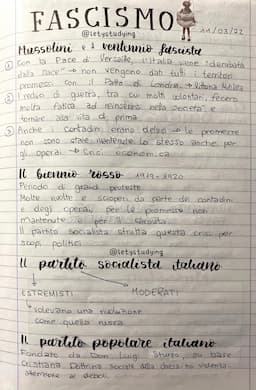 FASCISMO
11/03/22
@letystudying
Mussolini e il ventennio fascista
① Con la Pace di Versaille, l'Italia viene "derubata
dalla pace" → non vengono dati tutti i territori
promessi con il Patto di Londra → Vittoria Mutilata
② I reduci di guerra, tra cui molti volontari, fecero
molta fatica ad reinserirsi nella società e
tornare alla vita di prima
③ Anche i contadini erano delusi → le promesse
non sono state mantenute. Lo stesso anche per
gli operai → Crisi economica
Il biennio rosso 1919-1920
Periodo di grandi proteste
Molte rivolte e scioperi da parte dei contadini
e degli operai, per le promesse non
mantenute e per il carovita.
Il partito socialista sfrutta questa crisi per
scopi politici
@letystudying
Il partito socialista italiano
ESTREMISTI MODERATI
volevano una rivoluzione
come quella russa
Il partito popolare italiano
Fondato da Don Luigi Sturzo, su base
Cristiana. Dottrina sociale della chiesa
attenzione ai deboli